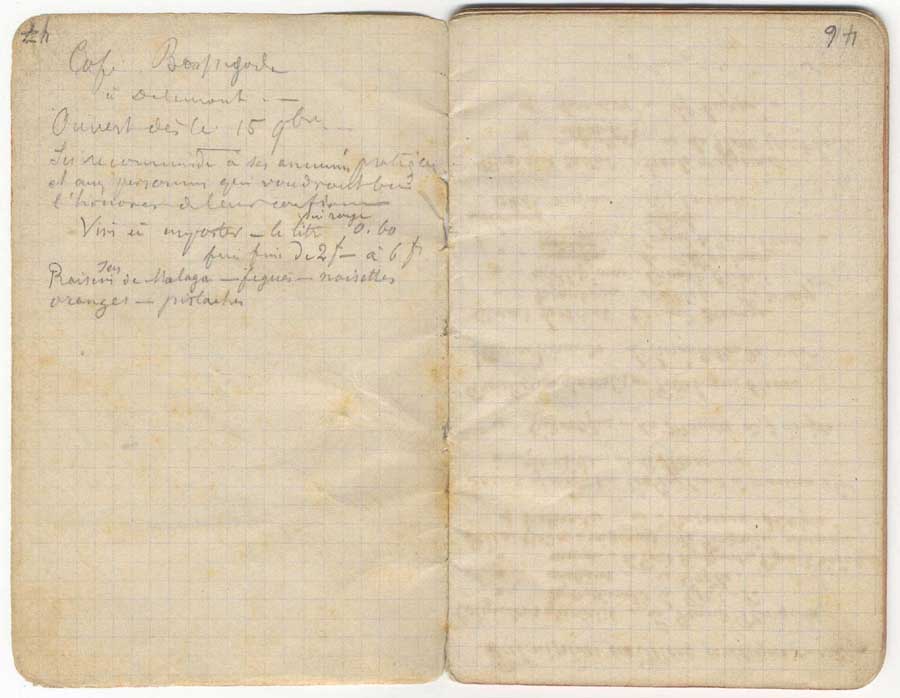 47
Café Bonsegode
à Delémont. —
Ouvert dès le 15 9bre —
Se recommande à ses anciennes pratiques
et aux personnes qui voudront bien
l'honorer de leur confiance
Vin à emporter — le litre vin rouge 0.60
fins fins de 2f — à 6 fr
Raisins secs de Malaga — figues — noisettes
oranges — pistaches
46